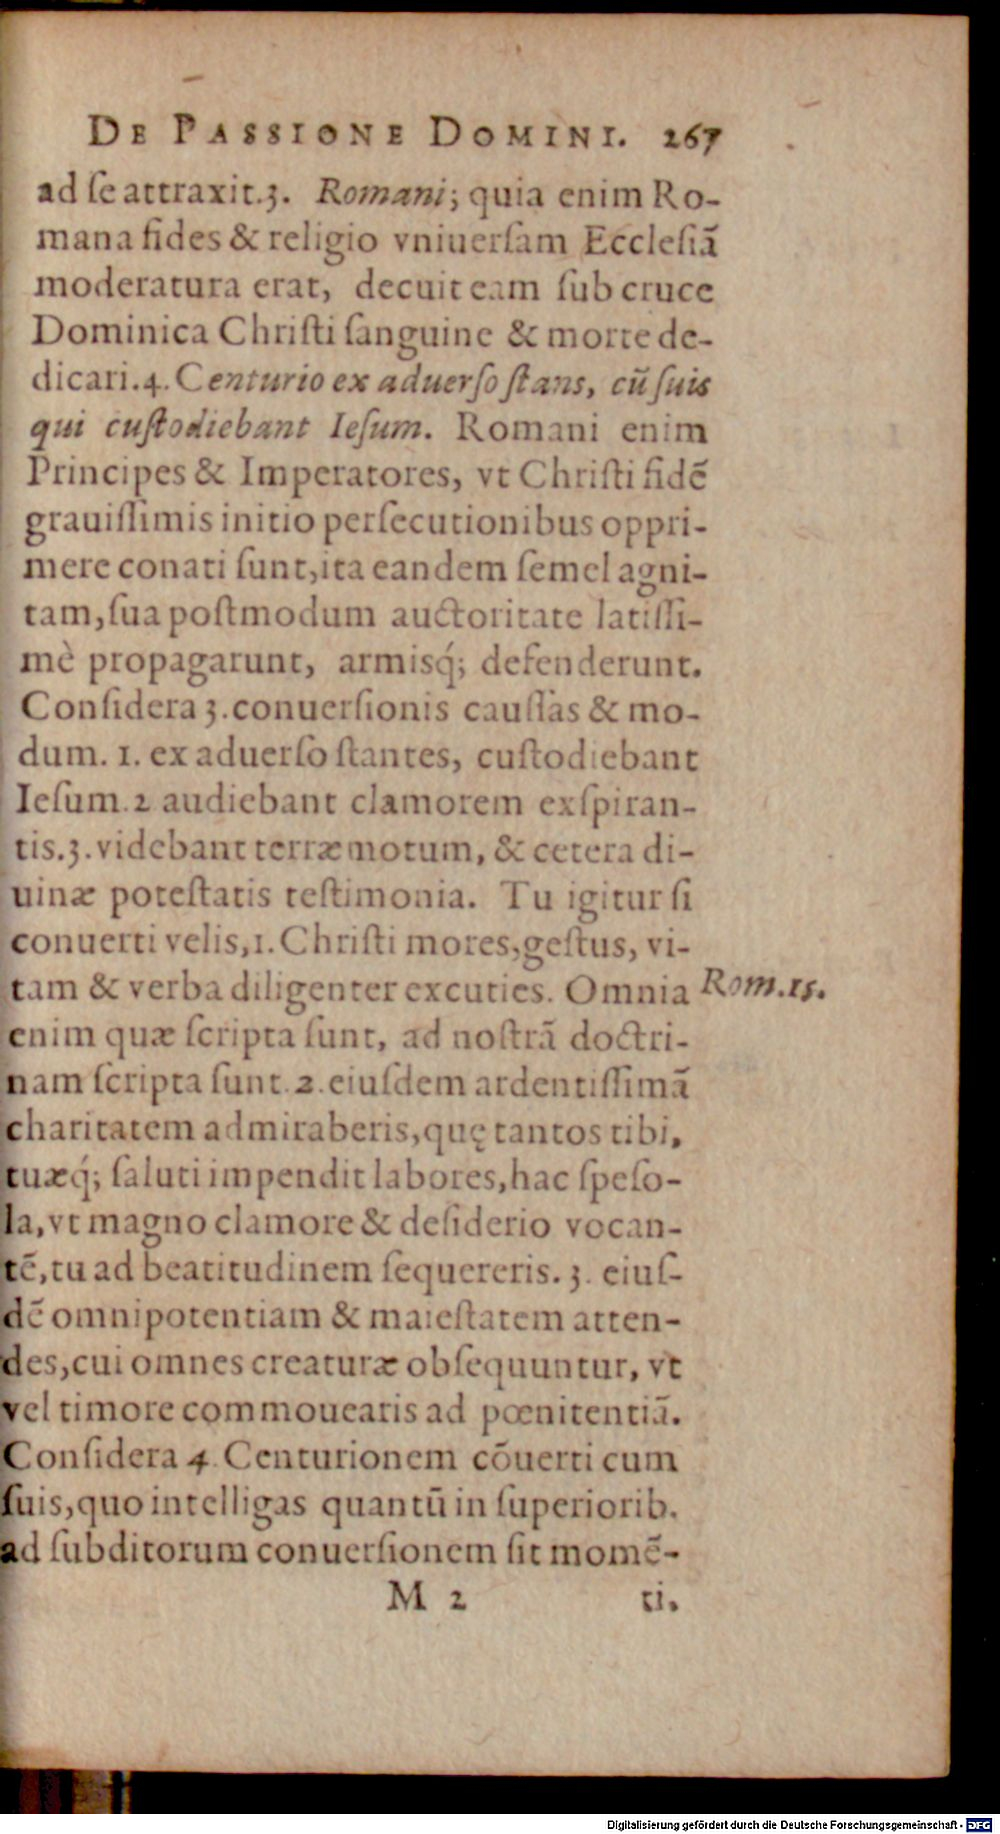 DE PASSIONE DOMINI. 267
ad ſe attraxit.3. Romani; quia enim Ro-
mana fides & religio vniuerſam Eccleſiã
moderatura erat, decuit eam ſub cruce
Dominica Chriſti ſanguine & morte de-
dicari.4. Centurio ex aduerſo ſtans, cũ ſuis
qui cuſtodiebant Ieſum. Romani enim
Principes & Imperatores, vt Chriſti fidẽ
grauiſſimis initio perſecutionibus oppri-
mere conati ſunt,ita eandem ſemel agni-
tam,ſua poſtmodum auctoritate latiſſi-
mè propagarunt, armisq́; defenderunt.
Conſidera 3.conuerſionis cauſſas & mo-
dum. 1. ex aduerſo ſtantes, cuſtodiebant
Ieſum.2 audiebant clamorem exſpiran-
tis.3.videbant terræ motum, & cetera di-
uinæ poteſtatis teſtimonia. Tu igitur ſi
conuerti velis,1.Chriſti mores,geſtus, vi-
tam & verba diligenter excuties. Omnia Rom.15.
enim quæ ſcripta ſunt, ad noſtrã doctri-
nam ſcripta ſunt.2.eiuſdem ardentiſſimã
charitatem admiraberis,quę tantos tibi,
tuæq́; ſaluti impendit labores,hac ſpe ſo-
la,vt magno clamore & deſiderio vocan-
tẽ,tu ad beatitudinem ſequereris. 3. eiuſ-
dẽ omnipotentiam & maieſtatem atten-
des,cui omnes creaturæ obſequuntur, vt
vel timore commouearis ad pœnitentiã.
Conſidera 4. Centurionem cõuerti cum
ſuis,quo intelligas quantũ in ſuperiorib.
ad ſubditorum conuerſionem ſit momẽ-
M 2 ti.
Digitalisierung gefördert durch die Deutsche Forschungsgemeinschaft - DFG